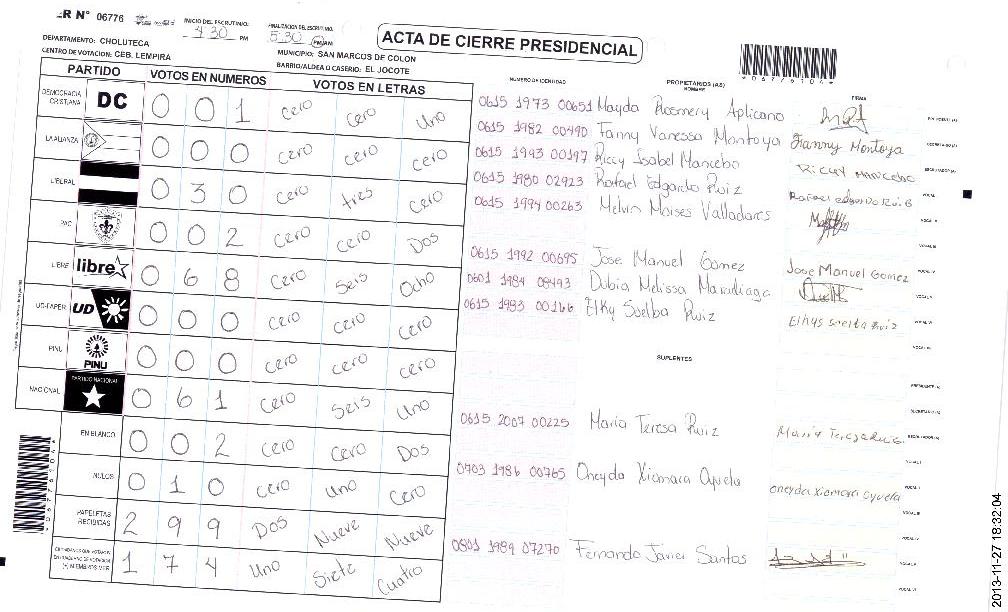 ER N° 06776
INICIO DEL ESCRUTINIO: 4 30 PM
FINALIZACION DEL ESCRUTINIO: 5:30 PM/AM
ACTA DE CIERRE PRESIDENCIAL
DEPARTAMENTO: CHOLUTECA
MUNICIPIO: SAN MARCOS DE COLON
CENTRO DE VOTACION: CEB. LEMPIRA
BARRIO/ALDEA O CASERIO: EL JOCOTE
PARTIDO VOTOS EN NUMEROS VOTOS EN LETRAS
DEMOCRACIA CRISTIANA DC 0 0 1 Cero Cero Uno
LA ALIANZA 0 0 0 Cero Cero Cero
LIBERAL 0 3 0 Cero tres Cero
PAC 0 0 2 Cero Cero Dos
LIBRE libre 0 6 8 Cero Seis Ocho
UD-FAPER UD 0 0 0 Cero Cero Cero
PINU PINU 0 0 0 Cero Cero Cero
NACIONAL PARTIDO NACIONAL 0 6 1 Cero Seis Uno
EN BLANCO 0 0 2 Cero Cero Dos
NULOS 0 1 0 Cero Uno Cero
PAPELETAS RECIBIDAS 2 9 9 Dos Nueve Nueve
1 7 4 Uno Siete Cuatro
NUMERO DE IDENTIDAD
PROPIETARIOS (AS)
NOMBRE
FIRMA
0615 1973 00651 Mayda Rosmery Aplicano
0615 1982 00490 Fanny Vanessa Montoya Fanny Montoya
0615 1993 00197 Riccy Isabel Mancebo Riccy Mancebo
0615 1980 02923 Rafael Edgardo Ruiz Rafael edgardo
0615 1994 00263 Melvin Moises Valladares
0615 1992 00695 Jose Manuel Gomez Jose Manuel Gomez
0601 1984 08493 Melissa
0615 1983 00166 Suelba Ruiz
SUPLENTES
0615 2007 00225 Maria Teresa Ruiz
0703 1986 00765 Oneyda Xiomara Oyuela oneyda xiomara oyuela
0801 1989 07270 Fernando Javier Santos
2013-11-27 18:32:04